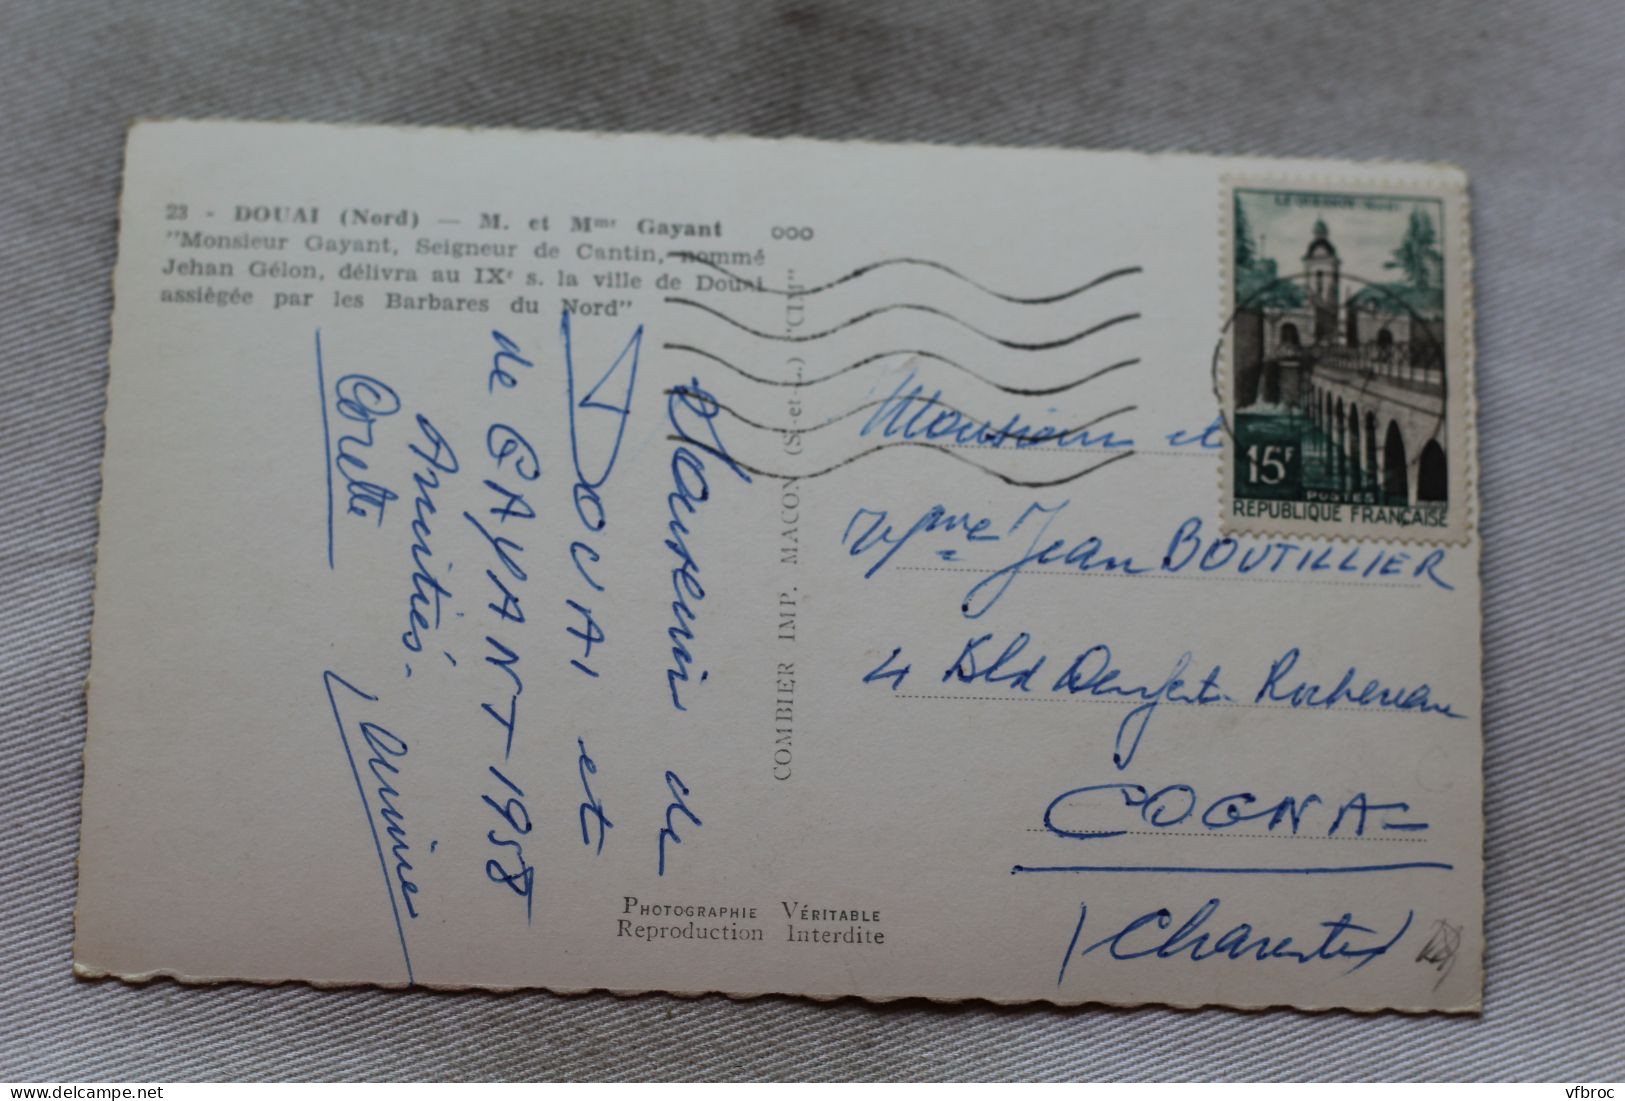 23 - DOUAI (Nord) — M. et Mme Gayant
"Monsieur Gayant, Seigneur de Cantin, nommé
Jehan Gélon, délivra au IXe s. la ville de Douai
assiègée par les Barbares du Nord"
Souvenir de
DOUAI et
de GAYANT 1958
Amitiés.
COMBIER IMP. MACON (S.-et-L.) "CIM"
PHOTOGRAPHIE VÉRITABLE
Reproduction Interdite
LE QUESNOY
15F
POSTES
REPUBLIQUE FRANÇAISE
Monsieur et
Mme Jean BOUTILLIER
4 Bld Denfert Rochereau
COGNAC
(Charente)
vfbroc